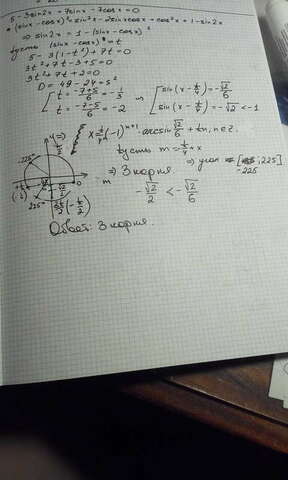 5 - 3sin2x + 7sinx - 7cosx = 0
* (sinx - cosx)² = sin²x - 2sinxcosx + cos²x = 1 - sin2x
⇒ sin2x = 1 - (sinx - cosx)²
Пусть (sinx - cosx) = t
5 - 3(1 - t²) + 7t = 0
3t² + 7t - 3 + 5 = 0
3t² + 7t + 2 = 0
D = 49 - 24 = 5²
[ t = (-7+5)/6 = -1/3
[ t = (-7-5)/6 = -2
[ sin(x - π/4) = -√2/6
[ sin(x - π/4) = -√2 < -1
x = π/4 + (-1)ⁿ⁺¹ arcsin √2/6 + πn, n∈Z.
⇒ 3 корня
-√2/2 < -√2/6
Ответ: 3 корня.